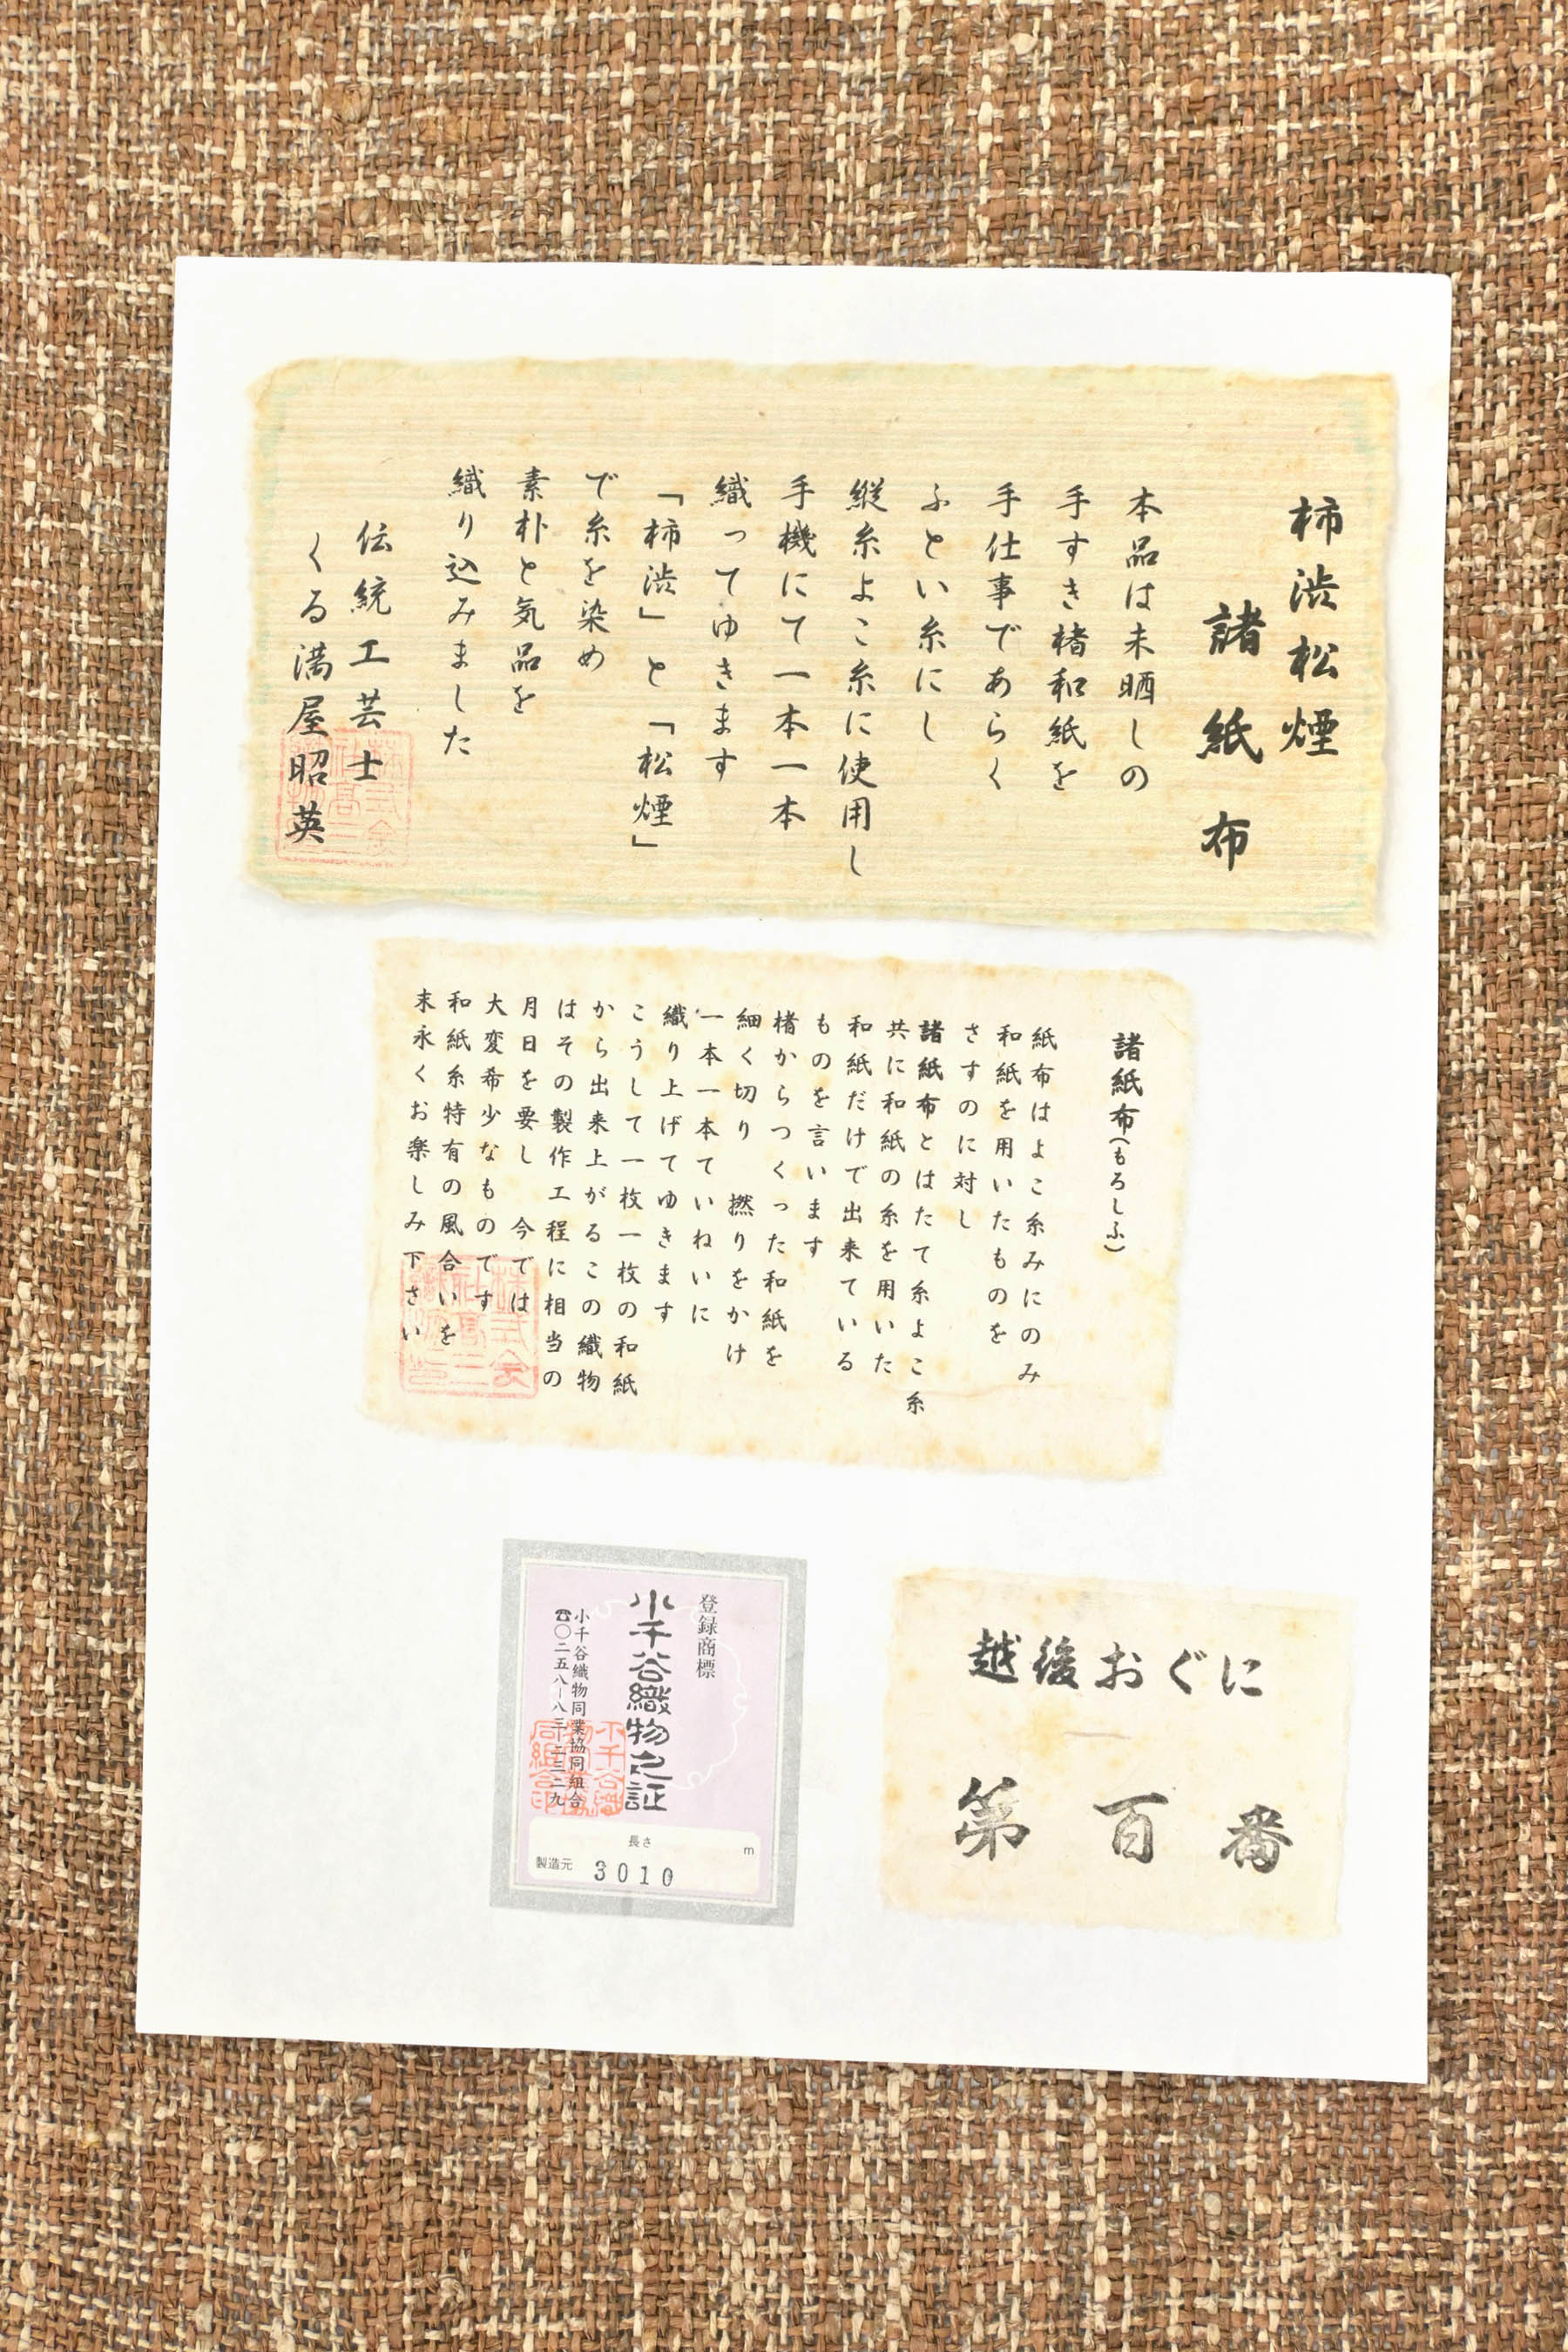 柿渋松煙
諸紙布
本品は未晒しの
手すき楮和紙を
手仕事であらく
ふとい糸にし
縦糸よこ糸に使用し
手機にて一本一本
織ってゆきます
「柿渋」と「松煙」
で糸を染め
素朴と気品を
織り込みました
伝統工芸士
くる満屋昭英
諸紙布(もろしふ)
紙布はよこ糸みにのみ
和紙を用いたものを
さすのに対し
諸紙布とはたて糸よこ糸
共に和紙の糸を用いた
和紙だけで出来ている
ものを言います
楮からつくった和紙を
細く切り 撚りをかけ
一本一本ていねいに
織り上げてゆきます
こうして一枚一枚の和紙
から出来上がるこの織物
はその製作工程に相当の
月日を要し 今では
大変希少なものです
和紙糸特有の風合いを
末永くお楽しみ下さい
登録商標
小千谷織物之証
小千谷織物同業協同組合
☎〇二五八ー八三ー二三二九
長さ
m
製造元 3010
越後おぐに
第百番